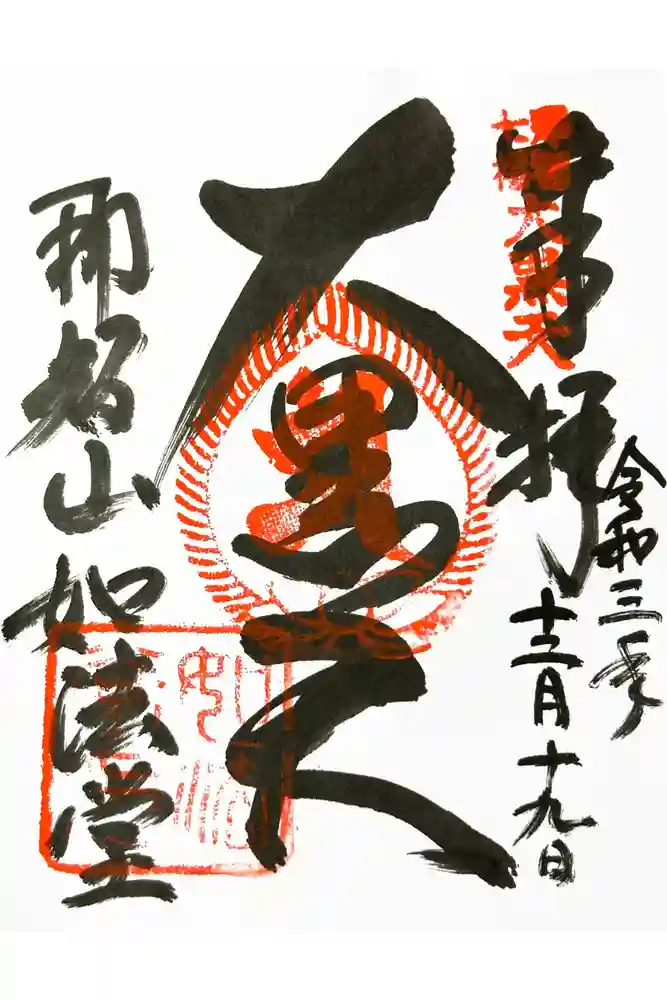 奉拝
令和三年
十二月十九日
大黒天
那智山
如法堂